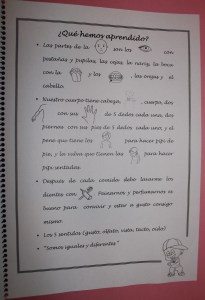 ¿Qué hemos aprendido?
• Las partes de la son los con
pestañas y pupilas, las cejas, la nariz, la boca
con la y los , las orejas y el
cabello.
• Nuestro cuerpo tiene cabeza, , cuerpo, dos
con sus de 5 dedos cada una, dos
piernas con sus pies de 5 dedos cada uno, y el
pene que tiene los para hacer pipi de
pie, y la vulva que tienen las para hacer
pipi sentadas.
• Después de cada comida debo lavarme los
dientes con . Peinarnos y perfumarnos es
bueno para convivir y estar a gusto consigo
mismo.
• Los 5 sentidos (gusto, olfato, vista, tacto, oído)
• "Somos iguales y diferentes"